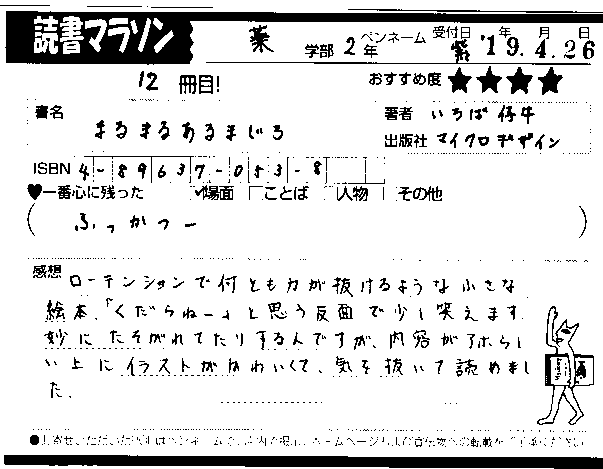 読書マラソン 薬 学部 2年 ペンネーム 紫 受付日 '19年.4月.26日
12 冊目! おすすめ度 ★★★★
書名 まるまるあるまじろ
著者 いちば仔牛
出版社 マイクロデザイン
ISBN 4-89637-053-8
♥一番心に残った ✓場面 □ことば □人物 □その他
(ふっかつー)
感想 ローテンションで何とも力が抜けるような小さな
絵本。「くだらねー」と思う反面で少し笑えます
妙にたそがれてたりするんですが、内容がアホらし
い上にイラストがかわいくて、気を抜いて読めまし
た。